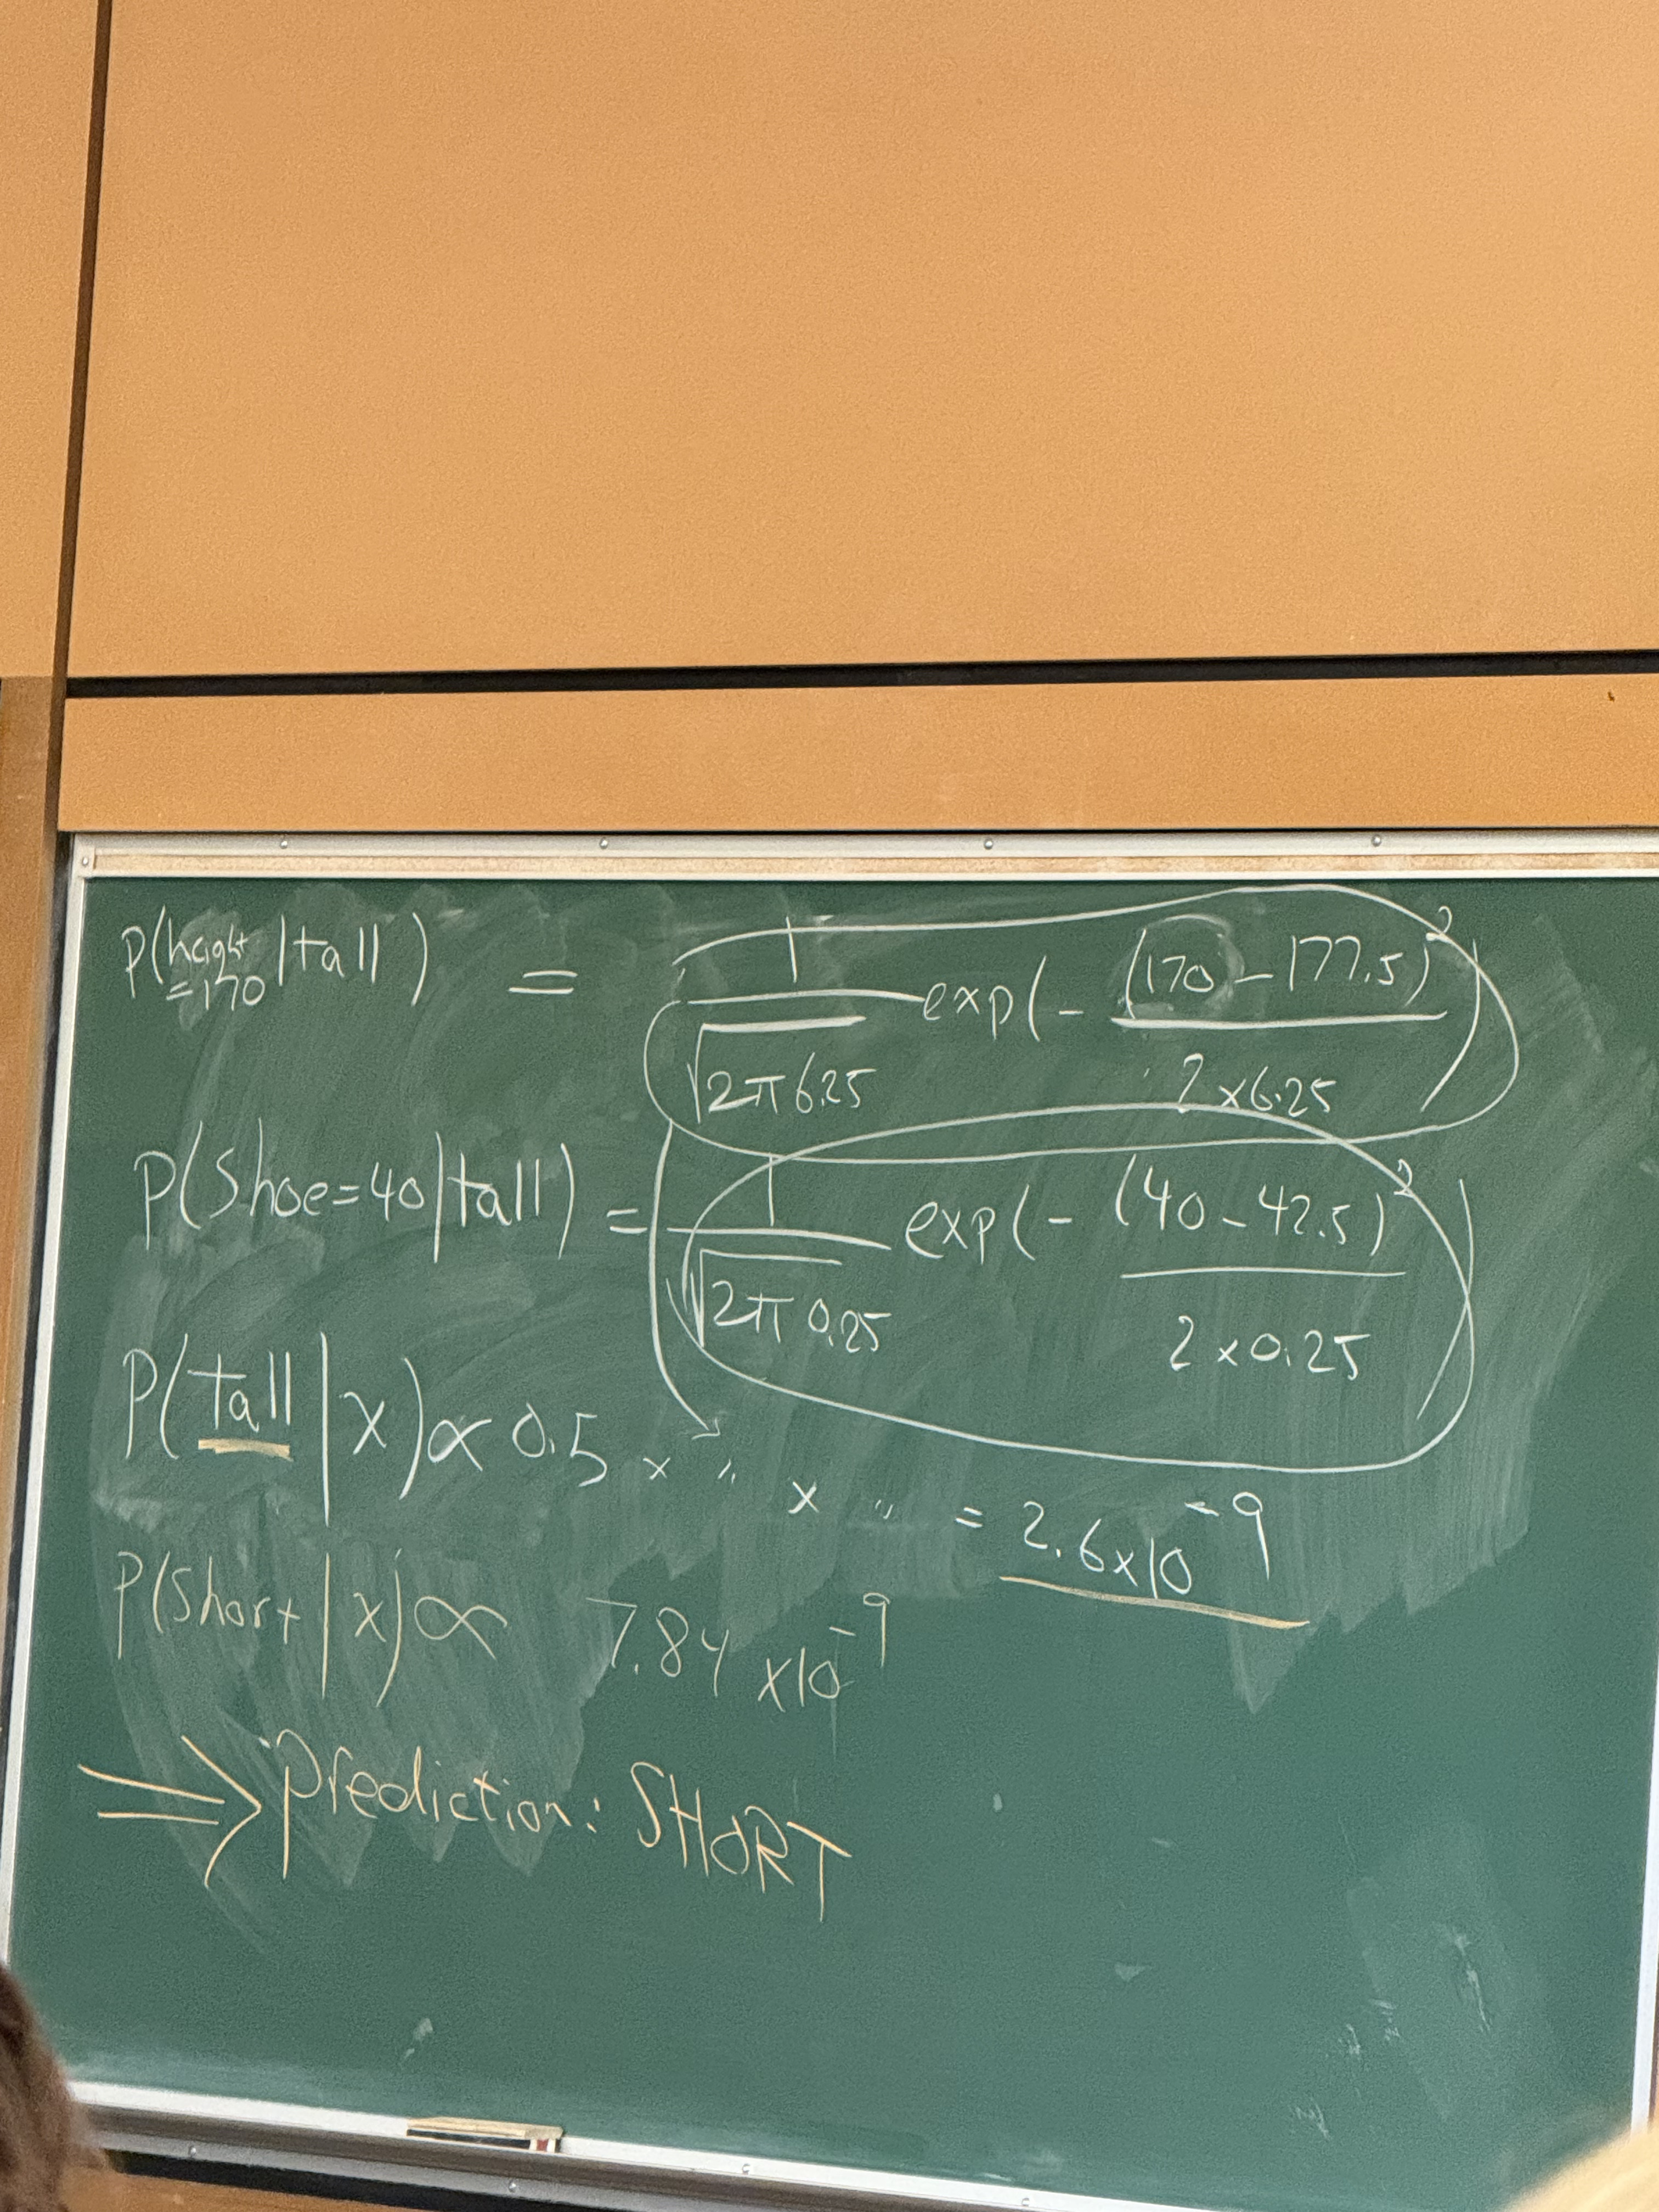 P(height=170|tall) = 1/√(2π6.25) exp(-(170-177.5)²/(2×6.25))
P(Shoe=40|tall) = 1/√(2π0.25) exp(-(40-42.5)²/(2×0.25))
P(tall|x) ∝ 0.5 × " × " = 2.6×10⁻⁹
P(short|x) ∝ 7.84×10⁻⁹
⇒ Prediction: SHORT